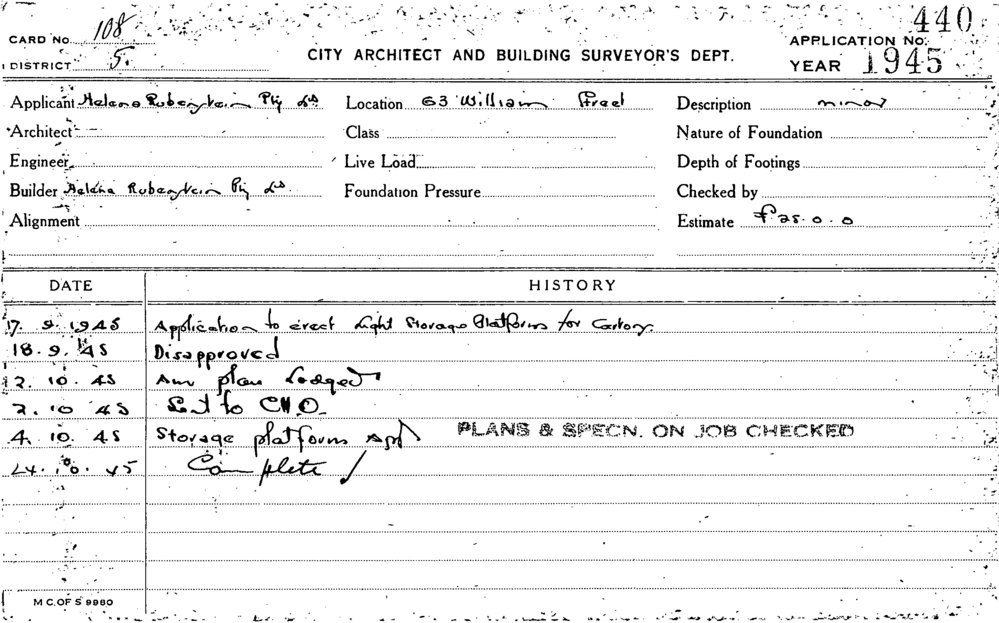 CARD No. 108
DISTRICT 5.
CITY ARCHITECT AND BUILDING SURVEYOR'S DEPT.
APPLICATION No. 440
YEAR 1945
Applicant Helena Rubenstein Pty Ld Location 63 William Street Description minor
Architect Class Nature of Foundation
Engineer Live Load Depth of Footings
Builder Helena Rubenstein Pty Ld Foundation Pressure Checked by
Alignment Estimate £25.0.0
DATE HISTORY
17. 9. 1945 Application to erect Light Storage Platforms for
18. 9. 45 Disapproved
2. 10. 45 Am plan Lodged
2. 10 45 Sent to C.H.O.
4. 10. 45 Storage platforms Apd PLANS & SPECN. ON JOB CHECKED
24. 10. 45 Complete
M C. OF S 9980